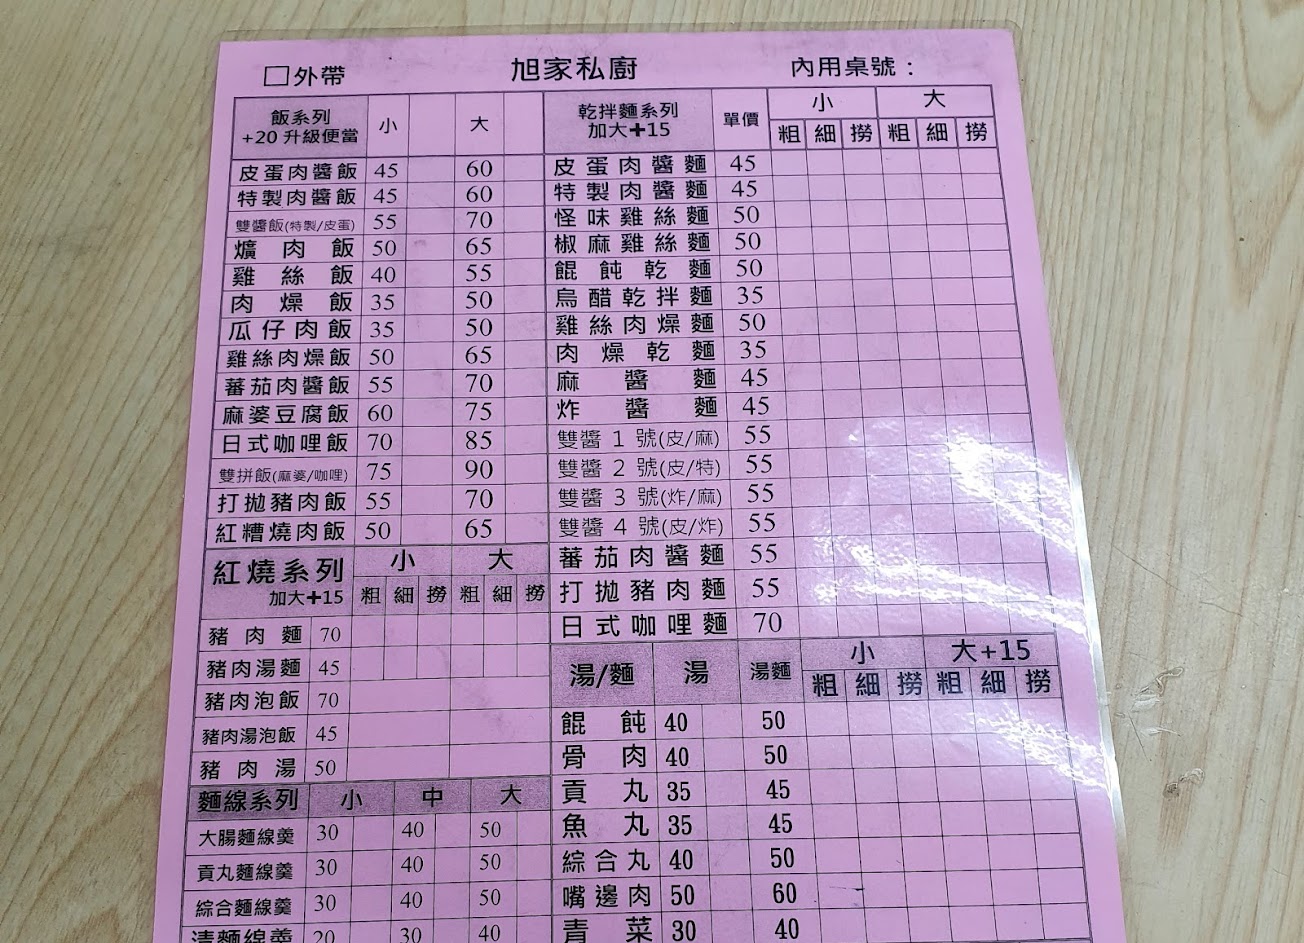 □外帶 旭家私廚 內用桌號：
飯系列 小 大
+20 升級便當
皮蛋肉醬飯 45 60
特製肉醬飯 45 60
雙醬飯(特製/皮蛋) 55 70
爌肉飯 50 65
雞絲飯 40 55
肉燥飯 35 50
瓜仔肉飯 35 50
雞絲肉燥飯 50 65
蕃茄肉醬飯 55 70
麻婆豆腐飯 60 75
日式咖哩飯 70 85
雙拼飯(麻婆/咖哩) 75 90
打拋豬肉飯 55 70
紅糟燒肉飯 50 65
紅燒系列 小 大
加大+15 粗 細 撈 粗 細 撈
豬肉麵 70
豬肉湯麵 45
豬肉泡飯 70
豬肉湯泡飯 45
豬肉湯 50
麵線系列 小 中 大
大腸麵線羹 30 40 50
貢丸麵線羹 30 40 50
綜合麵線羹 30 40 50
清麵線羹 20 30 40
乾拌麵系列 單價 小 大
加大+15 粗 細 撈 粗 細 撈
皮蛋肉醬麵 45
特製肉醬麵 45
怪味雞絲麵 50
椒麻雞絲麵 50
餛飩乾麵 50
烏醋乾拌麵 35
雞絲肉燥麵 50
肉燥乾麵 35
麻醬麵 45
炸醬麵 45
雙醬 1 號(皮/麻) 55
雙醬 2 號(皮/特) 55
雙醬 3 號(炸/麻) 55
雙醬 4 號(皮/炸) 55
蕃茄肉醬麵 55
打拋豬肉麵 55
日式咖哩麵 70
湯/麵 湯 湯麵 小 大+15
粗 細 撈 粗 細 撈
餛飩 40 50
骨肉 40 50
貢丸 35 45
魚丸 35 45
綜合丸 40 50
嘴邊肉 50 60
青菜 30 40